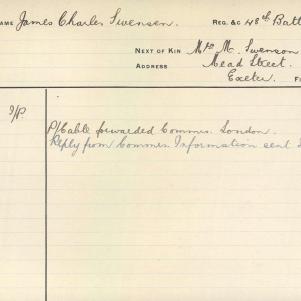 NAME James Charles Swensen. REG. &C 48th Batt
NEXT OF KIN Mrs M. Swenson
ADDRESS Mead Street.
Exeter.
I/P.
P/Cable forwarded Commns. London.
Reply from Commns. Information sent